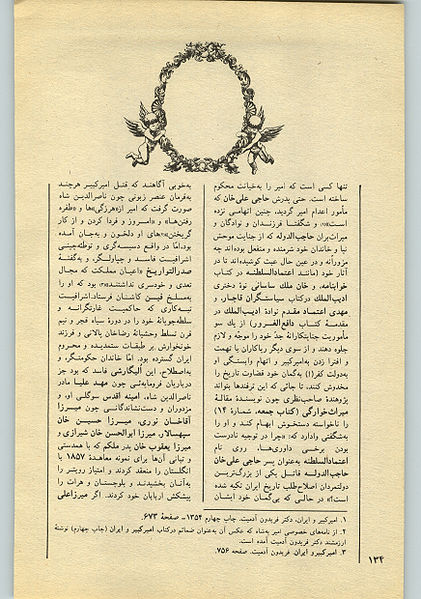 تنها کسی است که امیر را به‌خیانت محکوم
ساخته است. حتی پدرش حاجی علی‌خان که
مأمور اعدام امیر گردید، چنین اتهامی نزده
است«۱»، و شگفتا فرزندان و نوادگان و
میراث‌بران حاجب‌الدوله که از جنایت موحش
نیا و خاندان خود شرمنده و منفعل بوده‌اند چه
مزورانه و در عین حال عبث کوشیده‌اند تا در
آثار خود (مانند اعتمادالسلطنه در کتاب
خوابنامه، و خان ملک ساسانی نوهٔ دختری
ادیب‌الملک درکتاب سیاستگران قاجار، و
مهدی اعتماد مقدم نوادهٔ ادیب‌الملک در
مقدمهٔ کتاب دافع‌الغرور)، از یك سو
مأموریت جنایتکارانهٔ جد خود را موجه و لازم
جلوه دهند و از سوی دیگر با تهمت
و افترا زدن به‌امیرکبیر و اتهام وابستگی او
به‌دولت کفر(!) به‌گمان خود قضاوت تاریخ را
مخدوش کنند، تا جائی که این ترفندها بتواند
پژوهندهٔ صاحب‌نظری چون نویسندهٔ مقالهٔ
میراث‌خوارگی (کتاب جمعه، شمارهٔ ۱۴)
را ناخواسته دستخوش ابهام کند و او را
به‌شگفتی وادارد که: «چرا در توجیه نادرست
بودن برخی داوری‌ها، روی نام
اعتمادالسلطنه به‌عنوان پسر حاجی علی‌خان
حاجب‌الدوله قاتل یکی از بزرگ‌ترین
دولتمردان اصلاح‌طلب تاریخ ایران تکیه شده
است؟» در حالی که بی‌گمان خود ایشان
به‌خوبی آگاهند که قتل امیرکبیر هرچند
به‌فرمان عنصر زبونی چون ناصرالدین شاه
صورت گرفت که امیر از«هرزگی»ها و «طفره
رفتن‌ها» و «امروز و فردا کردن و از کار
گریختن»‌های او دلخون و به‌جان آمده
بود، امّا در واقع دسیسه‌گری و توطئه‌چینی
اشرافیت فاسد و چپاولگر، و به‌گفتهٔ
صدرالتواریخ «اعیان مملکت که مجال
تعدی و خودسری نداشتند»«۳» بود که او را
به‌مسلخ فین کاشان فرستاد. اشرافیت
تبه‌کاری که حاکمیت غارتگرانه و
سلطه‌جویانهٔ خود را در دورهٔ سیاه قجر و نیم
قرن تسلط وحشیانهٔ رضاخان پالانی و فرزند
خونخوارش بر طبقات ستمدیده و محروم
ایران گسترده بود. امّا خاندان حکومتگر، و
به‌اصطلاح، این الیگارشی فاسد که بود جز
درباریان فرومایه‌ئی چون مهد علیا مادر
ناصرالدین شاه، امینه اقدس سوگلی او، و
مزدوران و دست‌نشاندگانی چون میرزا
آقاخان نوری، میرزا حسین خان
سپهسالار، میرزا ابوالحسن خان شیرازی و
میرزا یعقوب خان پدر ملکم که با همدستی
و تبانی آن‌ها برای نمونه معاهدهٔ ۱۸۵۷ با
انگلستان را منعقد کردند و امتیاز رویتر را
به‌آنان بخشیدند و بلوچستان و هرات را
پیشکش اربابان خود کردند. اگر میرزاعلی
۱. امیرکبیر و ایران، دکتر فریدون آدمیت. چاپ چهارم ۱۳۵۴ـ صفحهٔ ۶۷۳.
۲. از نامه‌های خصوصی امیر به‌شاه که عکس آن به‌عنوان ضمائم درکتاب امیرکبیر و ایران (چاپ چهارم) نوشتهٔ
ارزشمند دکتر فریدون آدمیت آمده است.
۳. امیرکبیر و ایران. فریدون آدمیت. صفحه ۷۵۶.
۱۳۴